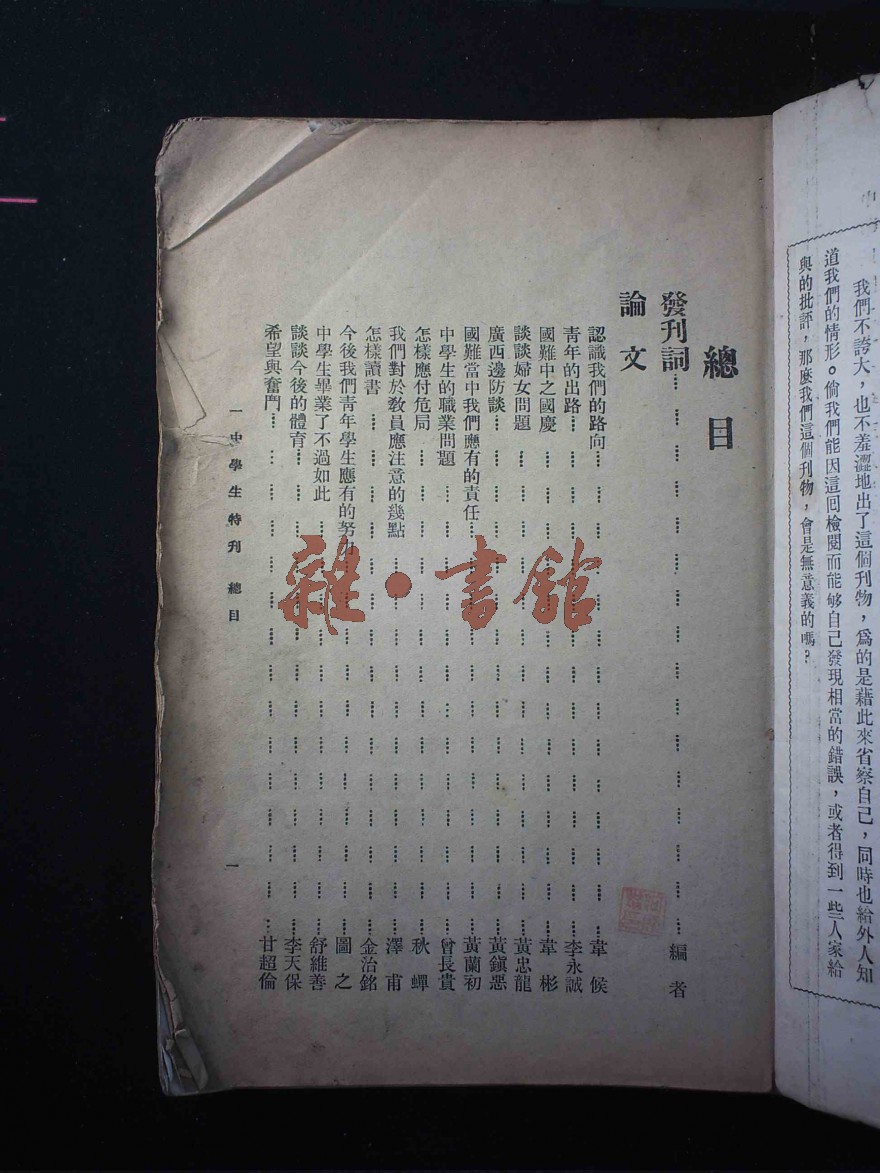 我們不誇大，也不羞澀地出了這個刊物，為的是藉此來省察自己，同時也給外人知
道我們的情形。倘我們能因這回檢閱而能够自己發現相當的錯誤，或者得到一些人家給
與的批評，那麼我們這個刊物，會是無意義的嗎？
總目
發刊詞…………編者
論文
認識我們的路向…………韋候
青年的出路…………李永誠
國難中之國慶…………韋彬
談談婦女問題…………黃忠龍
廣西邊防談…………黃鎭惡
國難當中我們應有的責任…………黃蘭初
中學生的職業問題…………曾長貴
怎樣應付危局…………秋蟬
我們對於教員應注意的幾點…………澤甫
怎樣讀書…………金治銘
今後我們青年學生應有的努力…………圖之
中學生畢業了不過如此…………舒維善
談談今後的體育…………李天保
希望與奮鬥…………甘超倫
一中學生特刊 總目
一
雜·書館